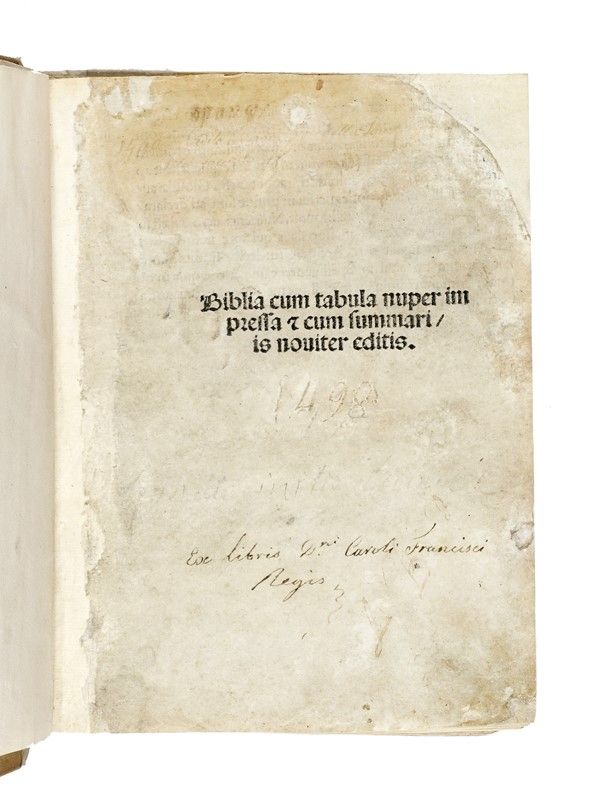 Biblia cum tabula nuper im
pressa ⁊ cum summari /
is noviter editis.
1498
Ex libris D.ni Caroli Francisci
Regis